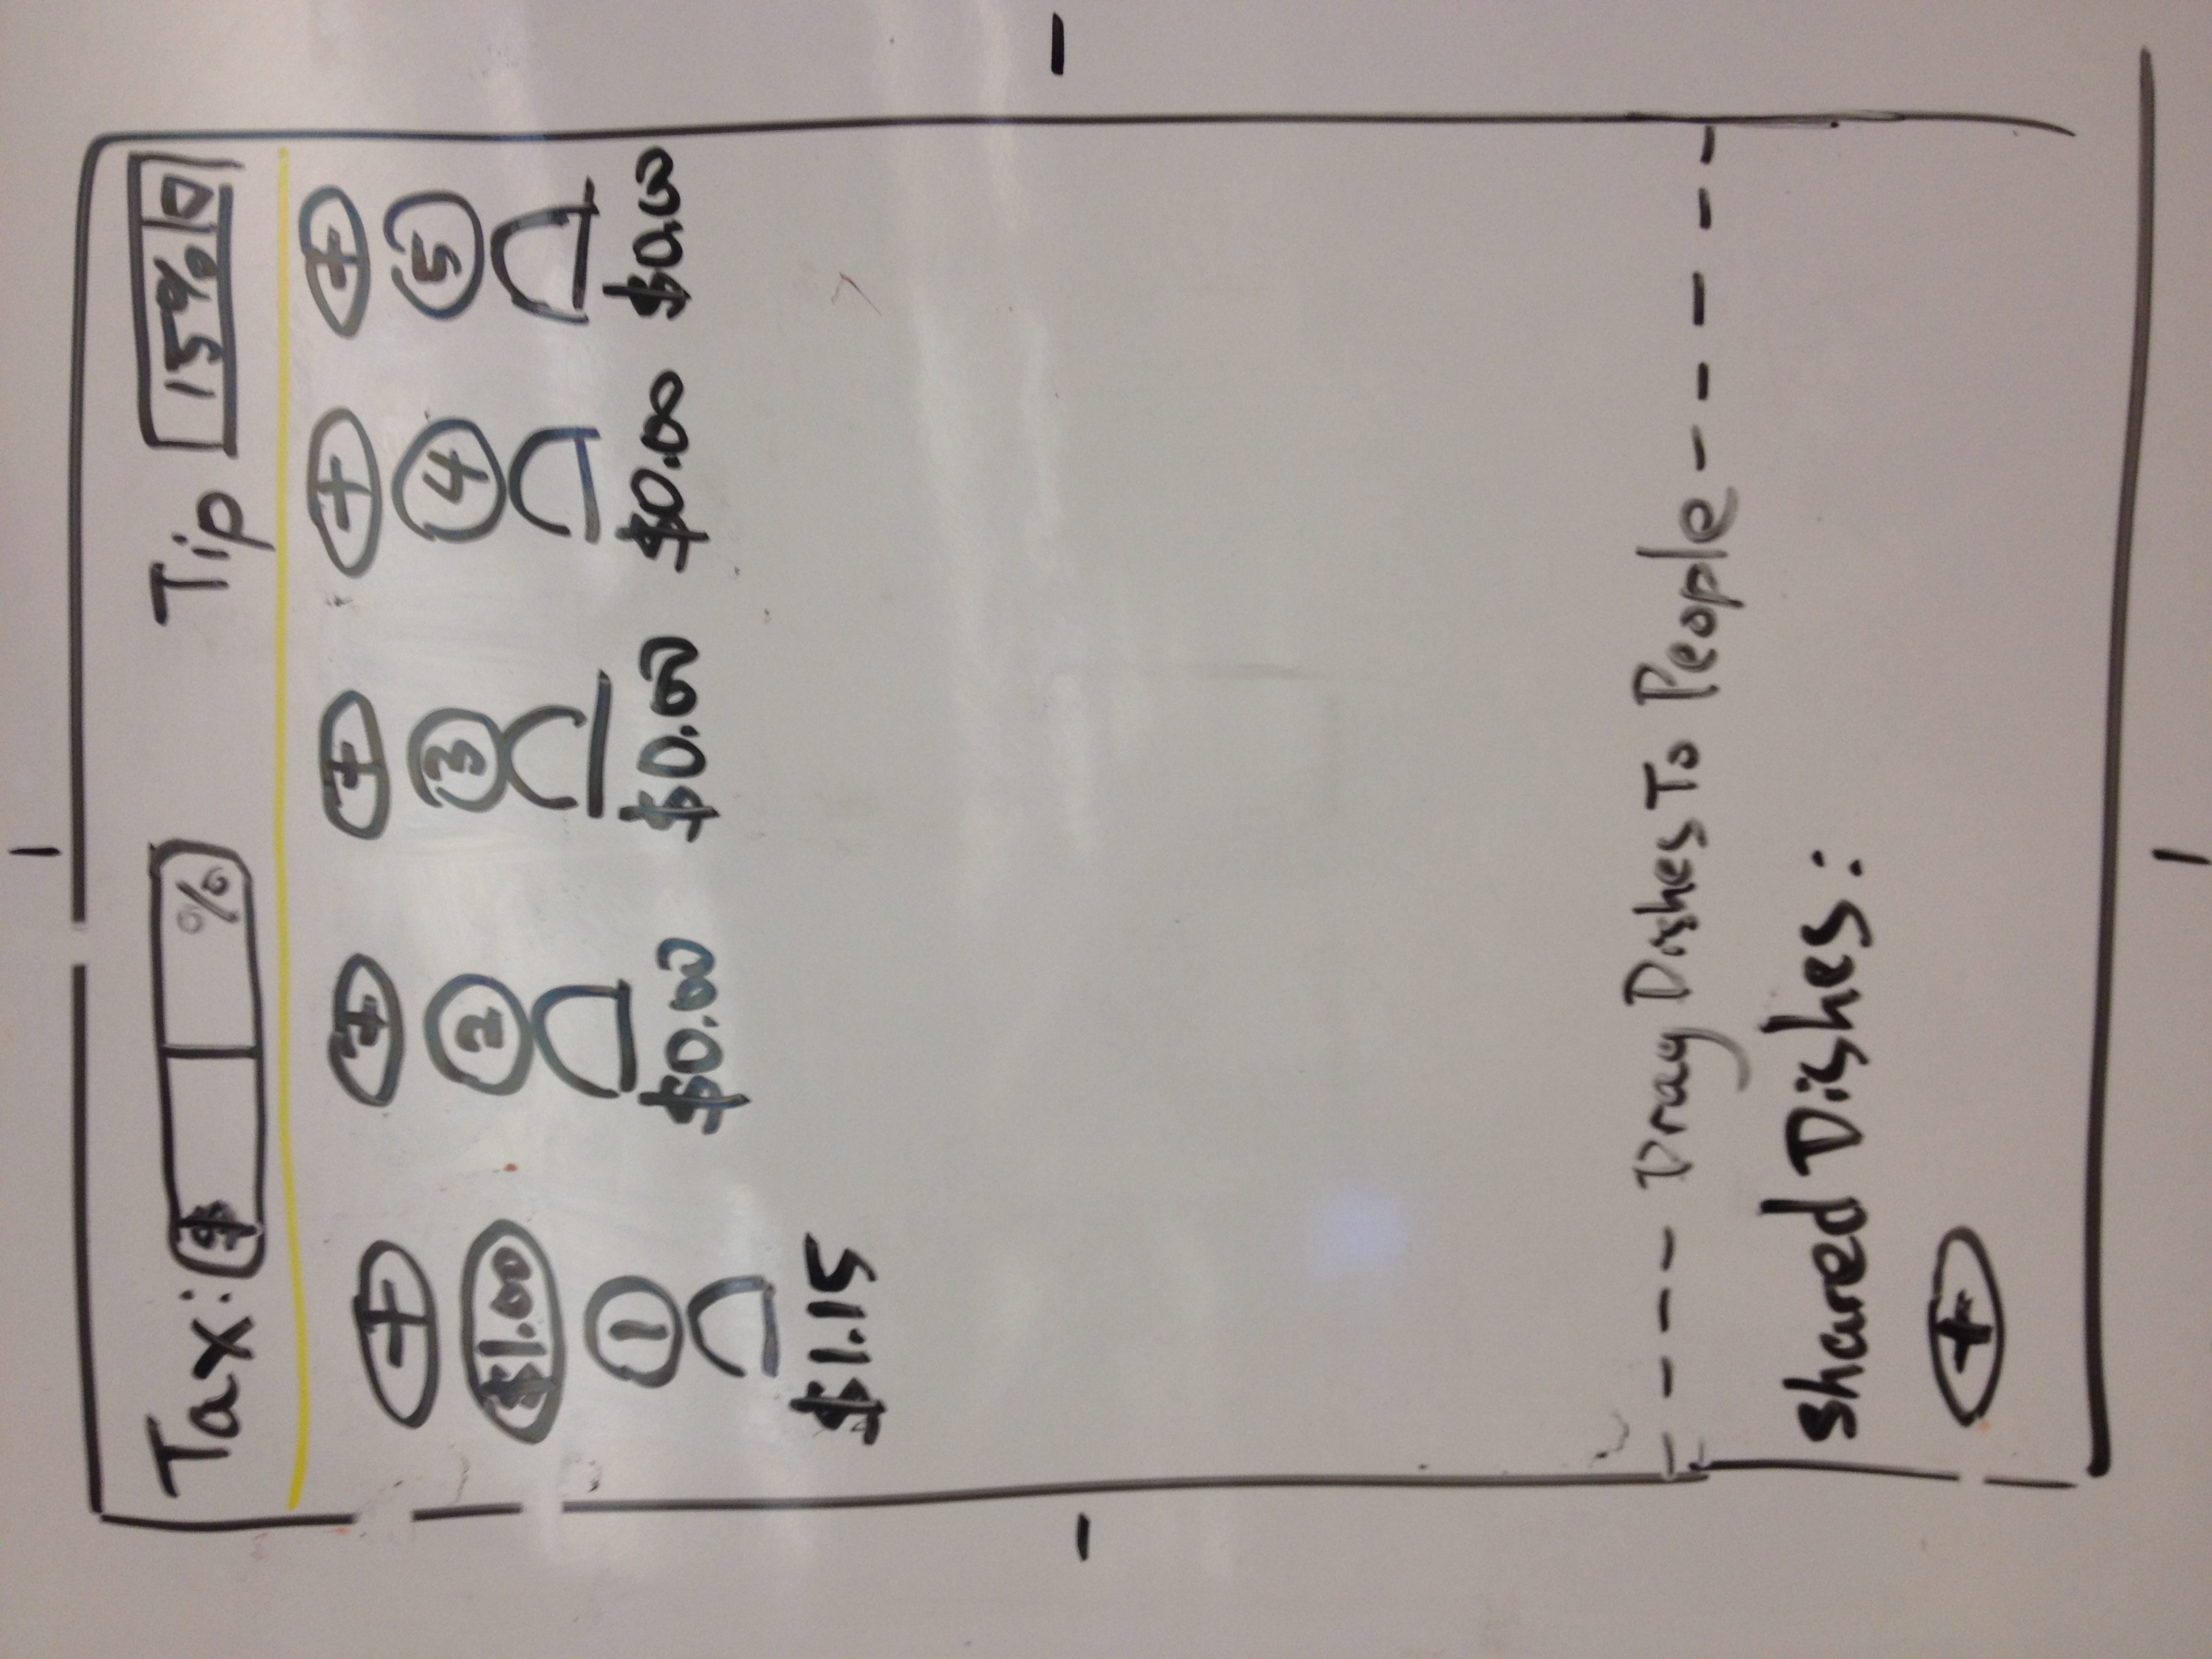 Tax: $ % Tip 15%
+ + + + +
$1.00 2 3 4 5
1 $0.00 $0.00 $0.00 $0.00
$1.15
Drag Dishes To People
Shared Dishes:
+